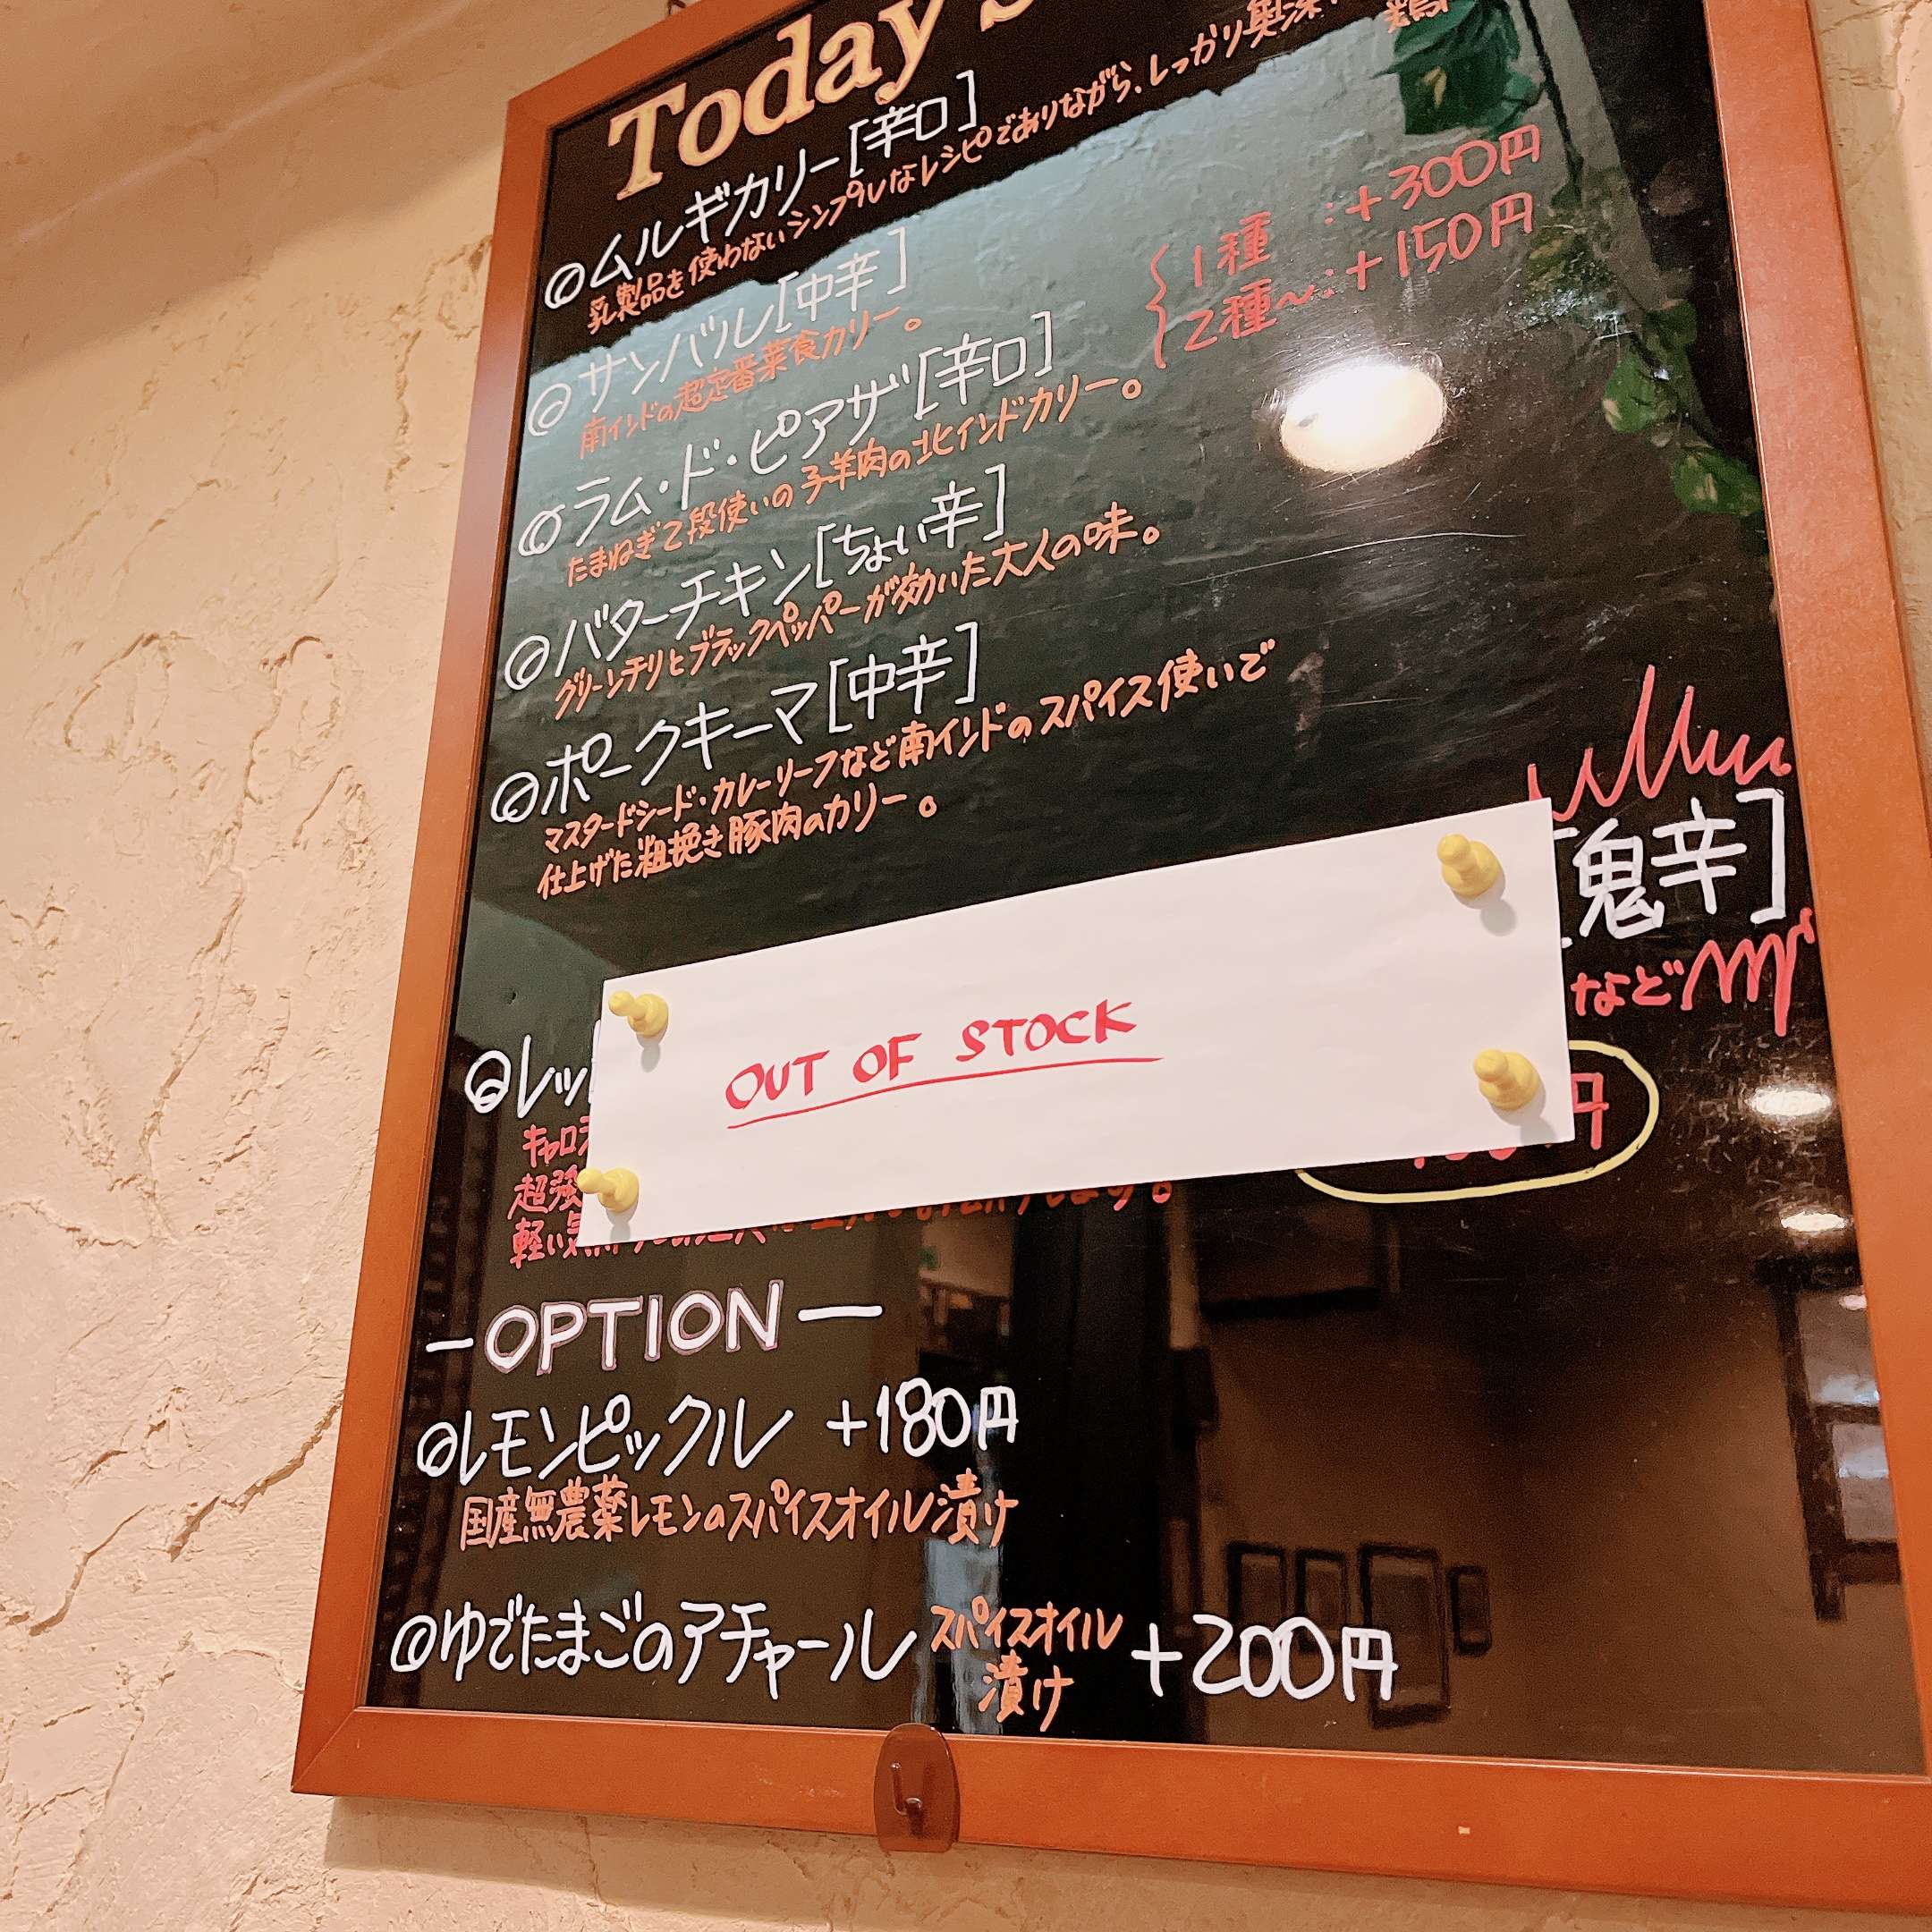 Today's
◎ムルギカリー[辛口]
乳製品を使わないシンプルなレシピでありながら、しっかり奥深い
鶏
◎サンバル[中辛]
南インドの超定番菜食カリー。
1種 :+300円
2種〜:+150円
◎ラム・ド・ピアザ[辛口]
たまねぎ2段使いの子羊肉の北インドカリー。
◎バターチキン[ちょい辛]
グリーンチリとブラックペッパーが効いた大人の味。
◎ポークキーマ[中辛]
マスタードシード・カレーリーフなど南インドのスパイス使いで
仕上げた粗挽き豚肉のカリー。
[鬼辛]
など
◎レッ
OUT OF STOCK
円
キャロラ
超強
軽い気
します。
ーOPTIONー
◎レモンピックル +180円
国産無農薬レモンのスパイスオイル漬け
◎ゆでたまごのアチャール スパイスオイル漬け +200円